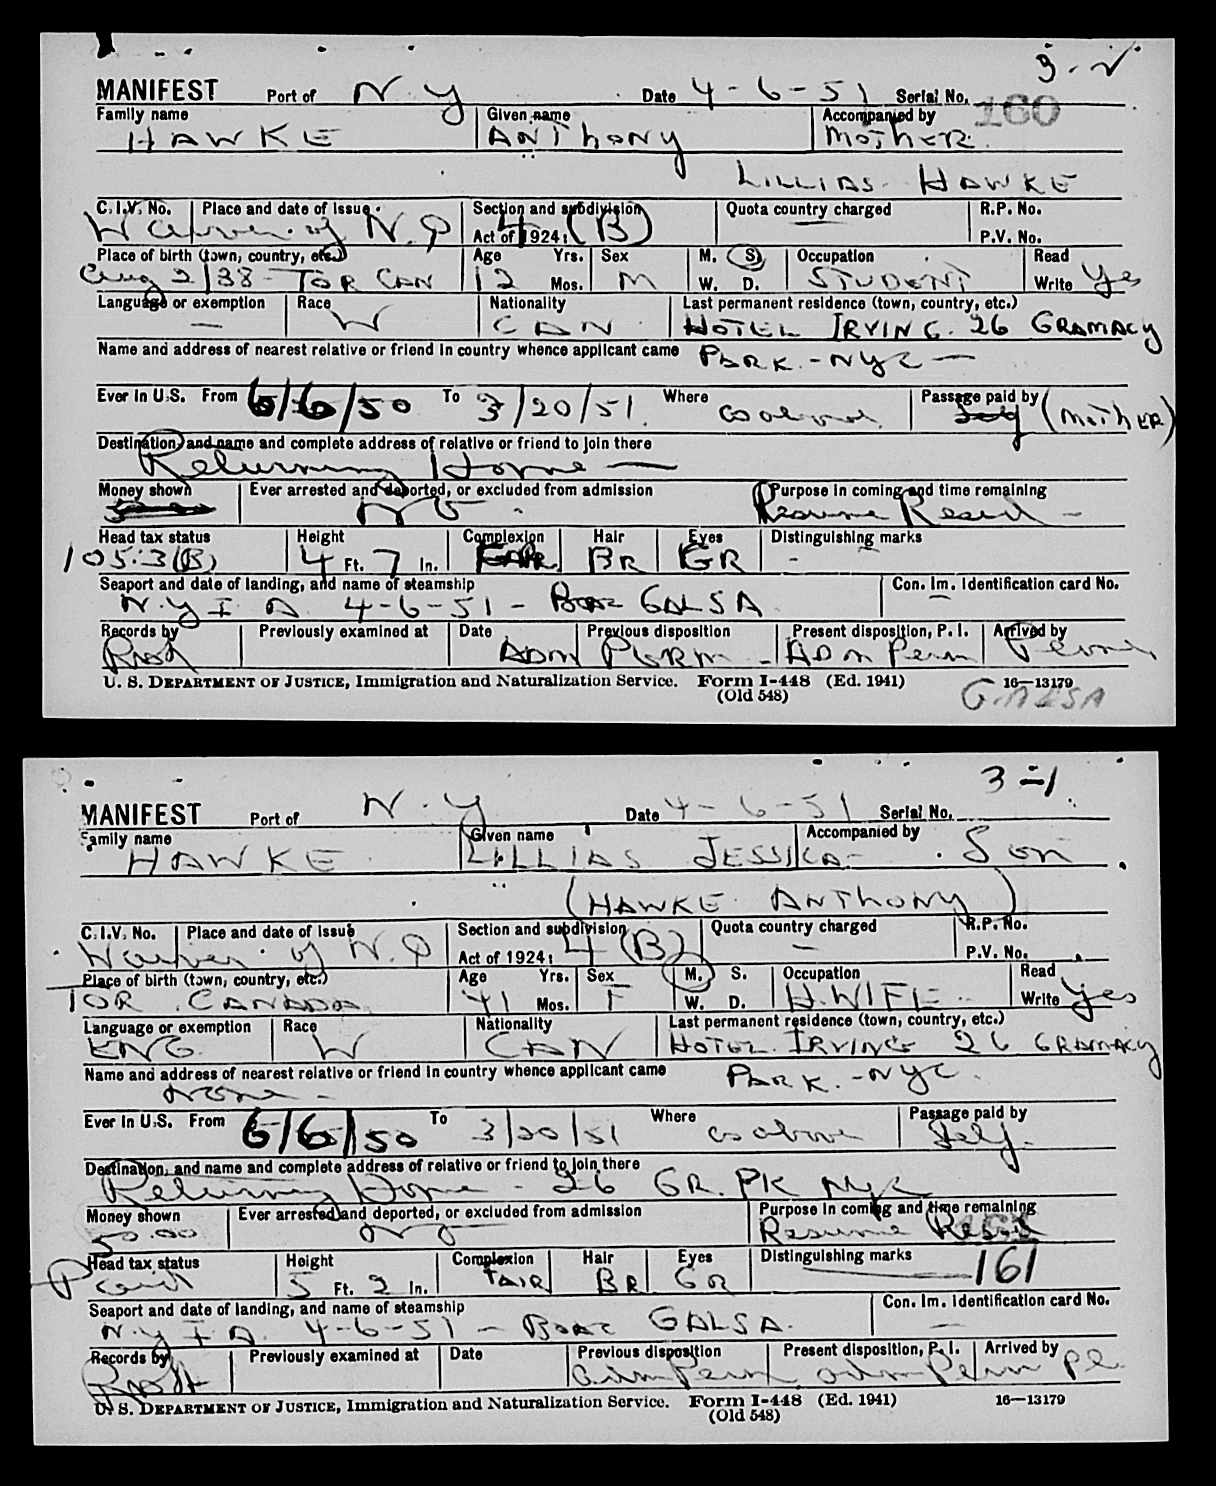 3-2
MANIFEST Port of N.Y Date 4-6-51 Serial No. 160
Family name Given name Accompanied by
HAWKE ANThONY MOThER
LILLIAS HAWKE
C.I.V. No. Place and date of issue Section and subdivision Quota country charged R.P. No.
Waiver of N.P Act of 1924: 4 (B) — P.V. No.
Place of birth (town, country, etc.) Age Yrs. Sex M. S. Occupation Read
Aug 2/38 - TOR CAN 12 Mos. M W. D. STUDENT Write Yes
Language or exemption Race Nationality Last permanent residence (town, country, etc.)
— W CAN HOTEL IRVING 26 GRAMACY
Name and address of nearest relative or friend in country whence applicant came PARK - NYC —
Ever in U.S. From 6/6/50 To 3/20/51 Where as above Passage paid by Self (MOThER)
Destination, and name and complete address of relative or friend to join there
Returning Home —
Money shown Ever arrested and deported, or excluded from admission Purpose in coming and time remaining
NO Resume Resid -
Head tax status Height Complexion Hair Eyes Distinguishing marks
105.3(B) 4 Ft. 7 In. FAIR BR GR -
Seaport and date of landing, and name of steamship Con. Im. Identification card No.
N.Y I A 4-6-51 - BOAC GALSA —
Records by Previously examined at Date Previous disposition Present disposition, P. I. Arrived by
ADM PERM - ADM Perm
U. S. DEPARTMENT OF JUSTICE, Immigration and Naturalization Service. Form I-448 (Ed. 1941) 16—13179
(Old 548) GALSA
3-1
MANIFEST Port of N.Y Date 4-6-51 Serial No.
Family name Given name Accompanied by
HAWKE LILLIAS JESSICA - Son
(HAWKE ANThONY)
C.I.V. No. Place and date of issue Section and subdivision Quota country charged R.P. No.
Waiver of N.P Act of 1924: 4 (B) — P.V. No.
Place of birth (town, country, etc.) Age Yrs. Sex M. S. Occupation Read
TOR CANADA 41 Mos. F W. D. H.WIFE Write Yes
Language or exemption Race Nationality Last permanent residence (town, country, etc.)
ENG. W CAN HOTEL IRVING 26 GRAMACY
Name and address of nearest relative or friend in country whence applicant came PARK. - NYC.
None -
Ever in U.S. From 6/6/50 To 3/20/51 Where as above Passage paid by Self.
Destination, and name and complete address of relative or friend to join there
Returning Home - 26 GR. PK NYC
Money shown Ever arrested and deported, or excluded from admission Purpose in coming and time remaining
50.00 NO Resume Resid
Head tax status Height Complexion Hair Eyes Distinguishing marks 161
Paid 5 Ft. 2 In. FAIR BR GR
Seaport and date of landing, and name of steamship Con. Im. Identification card No.
N.Y I A. 4-6-51 - BOAC GALSA. —
Records by Previously examined at Date Previous disposition Present disposition, P. I. Arrived by
adm Perm adm Perm Pl.
U. S. DEPARTMENT OF JUSTICE, Immigration and Naturalization Service. Form I-448 (Ed. 1941) 16—13179
(Old 548)